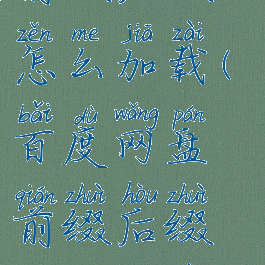 zěn me jiā zài
怎么加载(
bǎi dù wǎng pán
百度网盘
qián zhuì hòu zhuì
前缀后缀